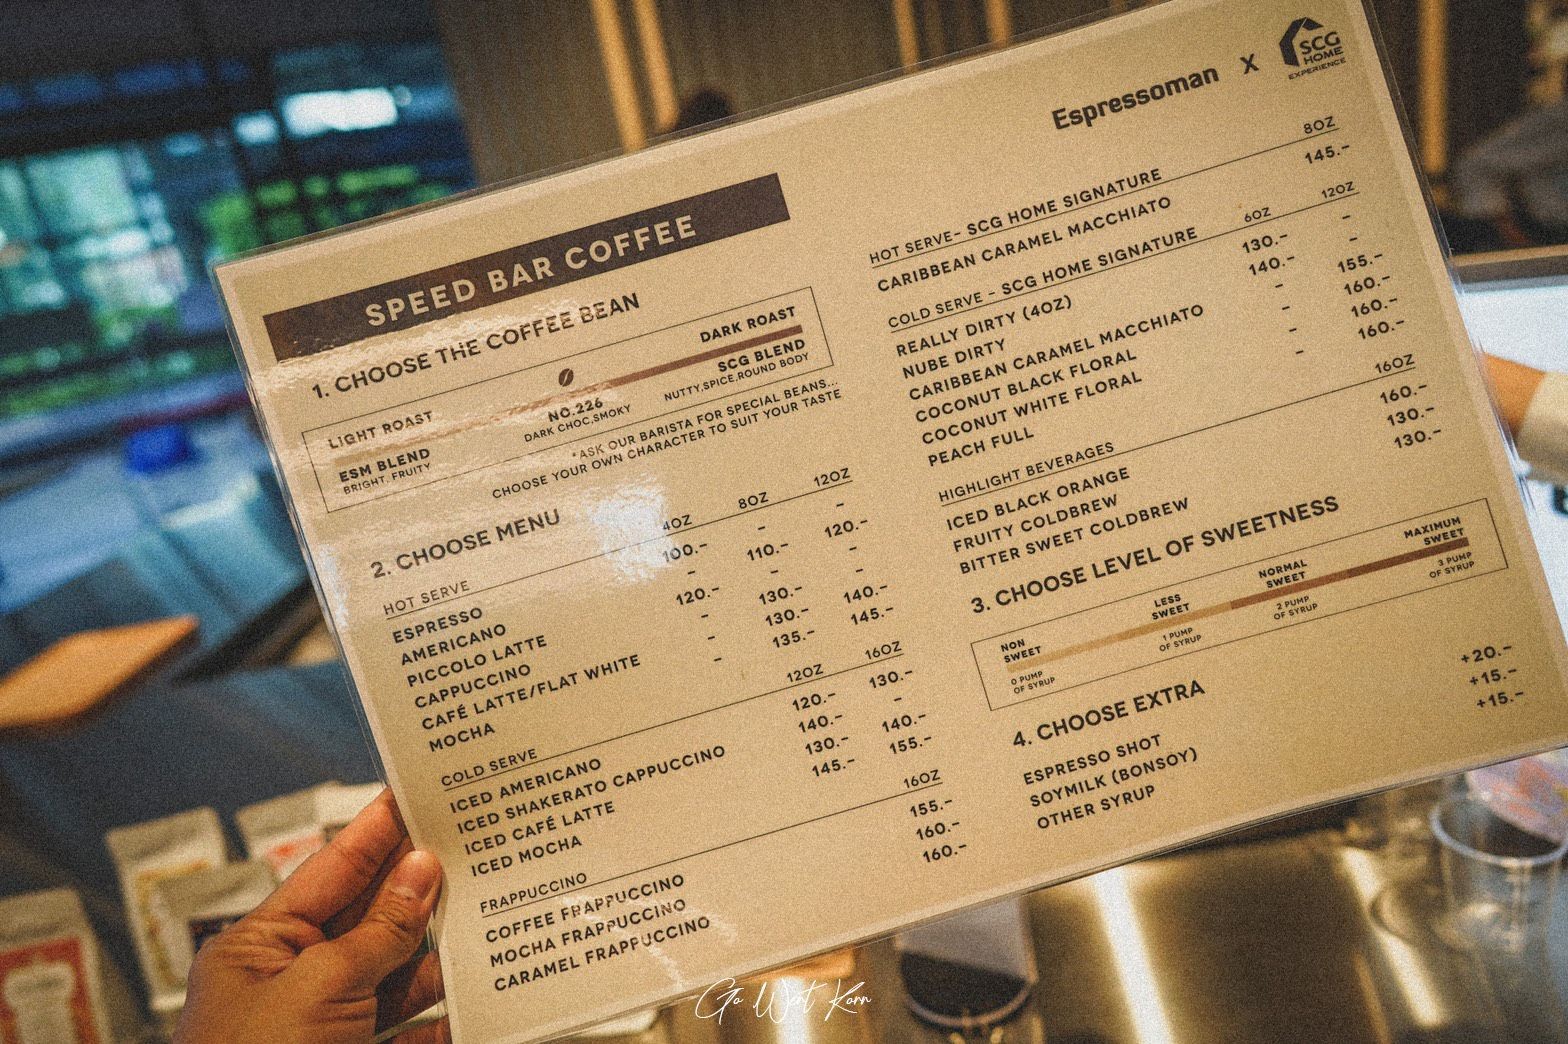 Espressoman X SCG HOME EXPERIENCE
SPEED BAR COFFEE
1. CHOOSE THE COFFEE BEAN
LIGHT ROAST DARK ROAST
ESM BLEND NO.226 SCG BLEND
BRIGHT, FRUITY DARK CHOC,SMOKY NUTTY,SPICE,ROUND BODY
*ASK OUR BARISTA FOR SPECIAL BEANS...
CHOOSE YOUR OWN CHARACTER TO SUIT YOUR TASTE
2. CHOOSE MENU
HOT SERVE 4OZ 8OZ 12OZ
ESPRESSO 100.- - -
AMERICANO - 110.- 120.-
PICCOLO LATTE 120.- - -
CAPPUCCINO - 130.-
CAFÉ LATTE/FLAT WHITE - 130.- 140.-
MOCHA - 135.- 145.-
COLD SERVE 12OZ 16OZ
ICED AMERICANO 120.- 130.-
ICED SHAKERATO CAPPUCCINO 140.- -
ICED CAFÉ LATTE 130.- 140.-
ICED MOCHA 145.- 155.-
FRAPPUCCINO 16OZ
COFFEE FRAPPUCCINO 155.-
MOCHA FRAPPUCCINO 160.-
CARAMEL FRAPPUCCINO 160.-
HOT SERVE- SCG HOME SIGNATURE 8OZ
CARIBBEAN CARAMEL MACCHIATO 145.-
COLD SERVE - SCG HOME SIGNATURE 6OZ 12OZ
REALLY DIRTY (4OZ) 130.- -
NUBE DIRTY 140.- -
CARIBBEAN CARAMEL MACCHIATO - 155.-
COCONUT BLACK FLORAL - 160.-
COCONUT WHITE FLORAL - 160.-
PEACH FULL - 160.-
HIGHLIGHT BEVERAGES 16OZ
ICED BLACK ORANGE 160.-
FRUITY COLDBREW 130.-
BITTER SWEET COLDBREW 130.-
3. CHOOSE LEVEL OF SWEETNESS
NON SWEET LESS SWEET NORMAL SWEET MAXIMUM SWEET
0 PUMP OF SYRUP 1 PUMP OF SYRUP 2 PUMP OF SYRUP 3 PUMP OF SYRUP
4. CHOOSE EXTRA
ESPRESSO SHOT +20.-
SOYMILK (BONSOY) +15.-
OTHER SYRUP +15.-
Go Went Karn